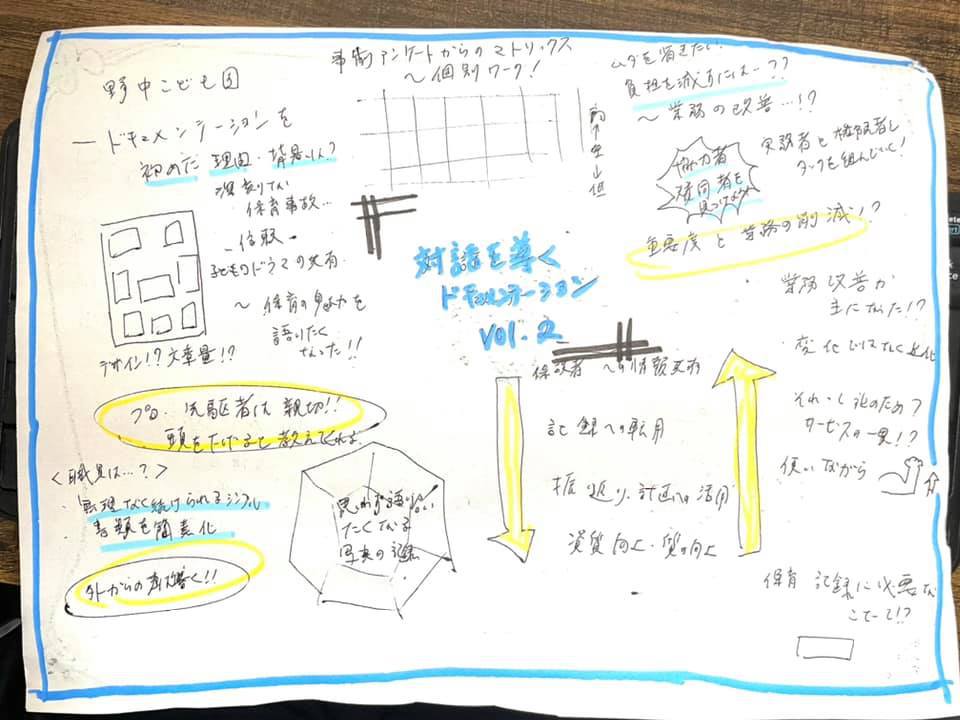 野中こども園
ドキュメンテーションを
初めた理由・背景って?
保育事故…
信頼
子どものドラマの共有
〜 保育の魅力を
語りたく
なった!!
デザイン!? 文章量!?
プロ・先駆者は親切!!
頭を下げると教えてくれる
<職員は…?>
・無理なく続けられるシンプル
・書類を簡素化
外からの声は響く!!
事前アンケートからのマトリックス
〜個別ワーク!
対話を導く
ドキュメンテーション
vol.2
保護者への情報共有
記録への転用
振返り・計画への活用
資質向上・質の向上
思わず語り合い
たくなる
写真の記録
ムダを省きたい
負担を減すには…??
〜業務の改善…!?
協力者
賛同者を
見つけよう
実務者と権限者と
タッグを組んでいく!
重要度と業務の削減!?
業務改善が
主になった!?
変化ではなく
それって誰のため?
サービスの一貫!?
使いながら
保育記録に必要な
ことって!?